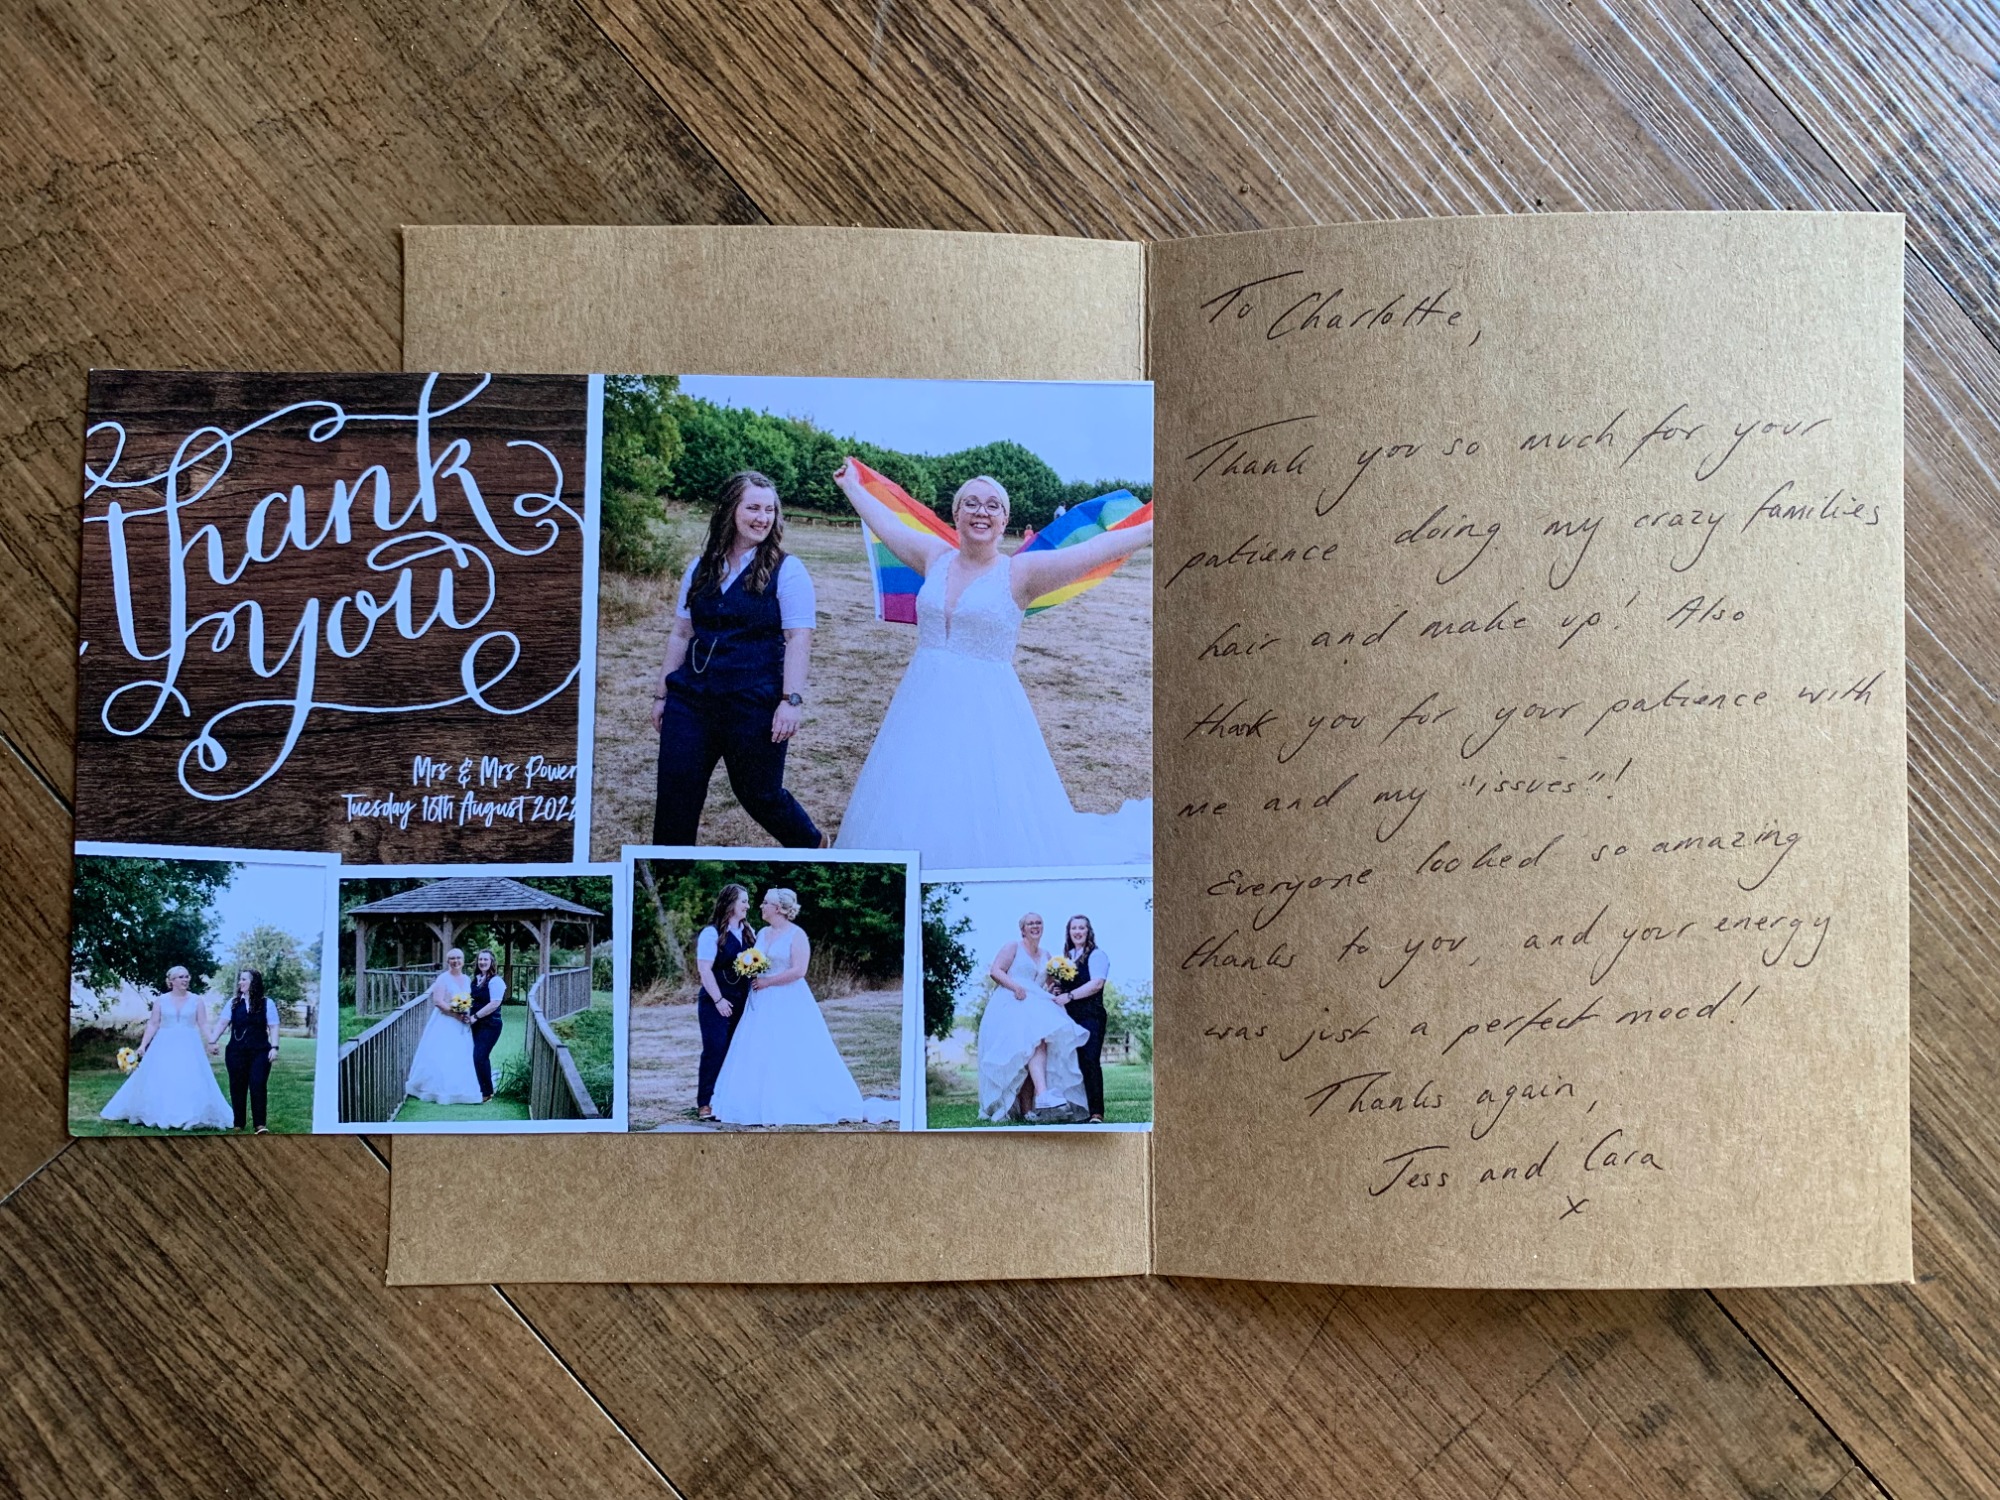 thank
you
Mrs & Mrs Power
Tuesday 16th August 2022
To Charlotte,
Thank you so much for your
patience doing my crazy families
hair and make up! Also
thank you for your patience with
me and my "issues"!
Everyone looked so amazing
thanks to you, and your energy
was just a perfect mood!
Thanks again,
Jess and Cara
x